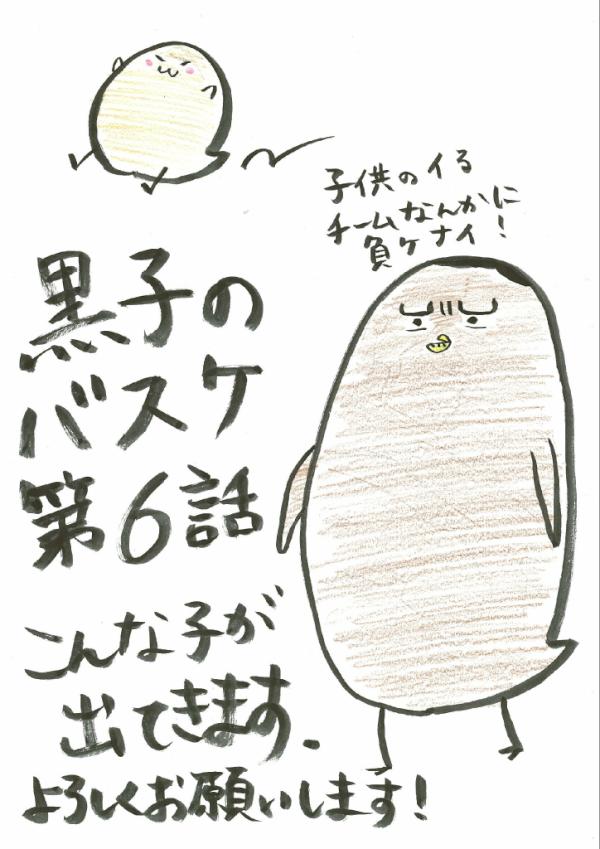 子供のイる
チームなんかに
負ケナイ!
黒子の
バスケ
第6話
こんな子が
出てきます.
よろしくお願いします!